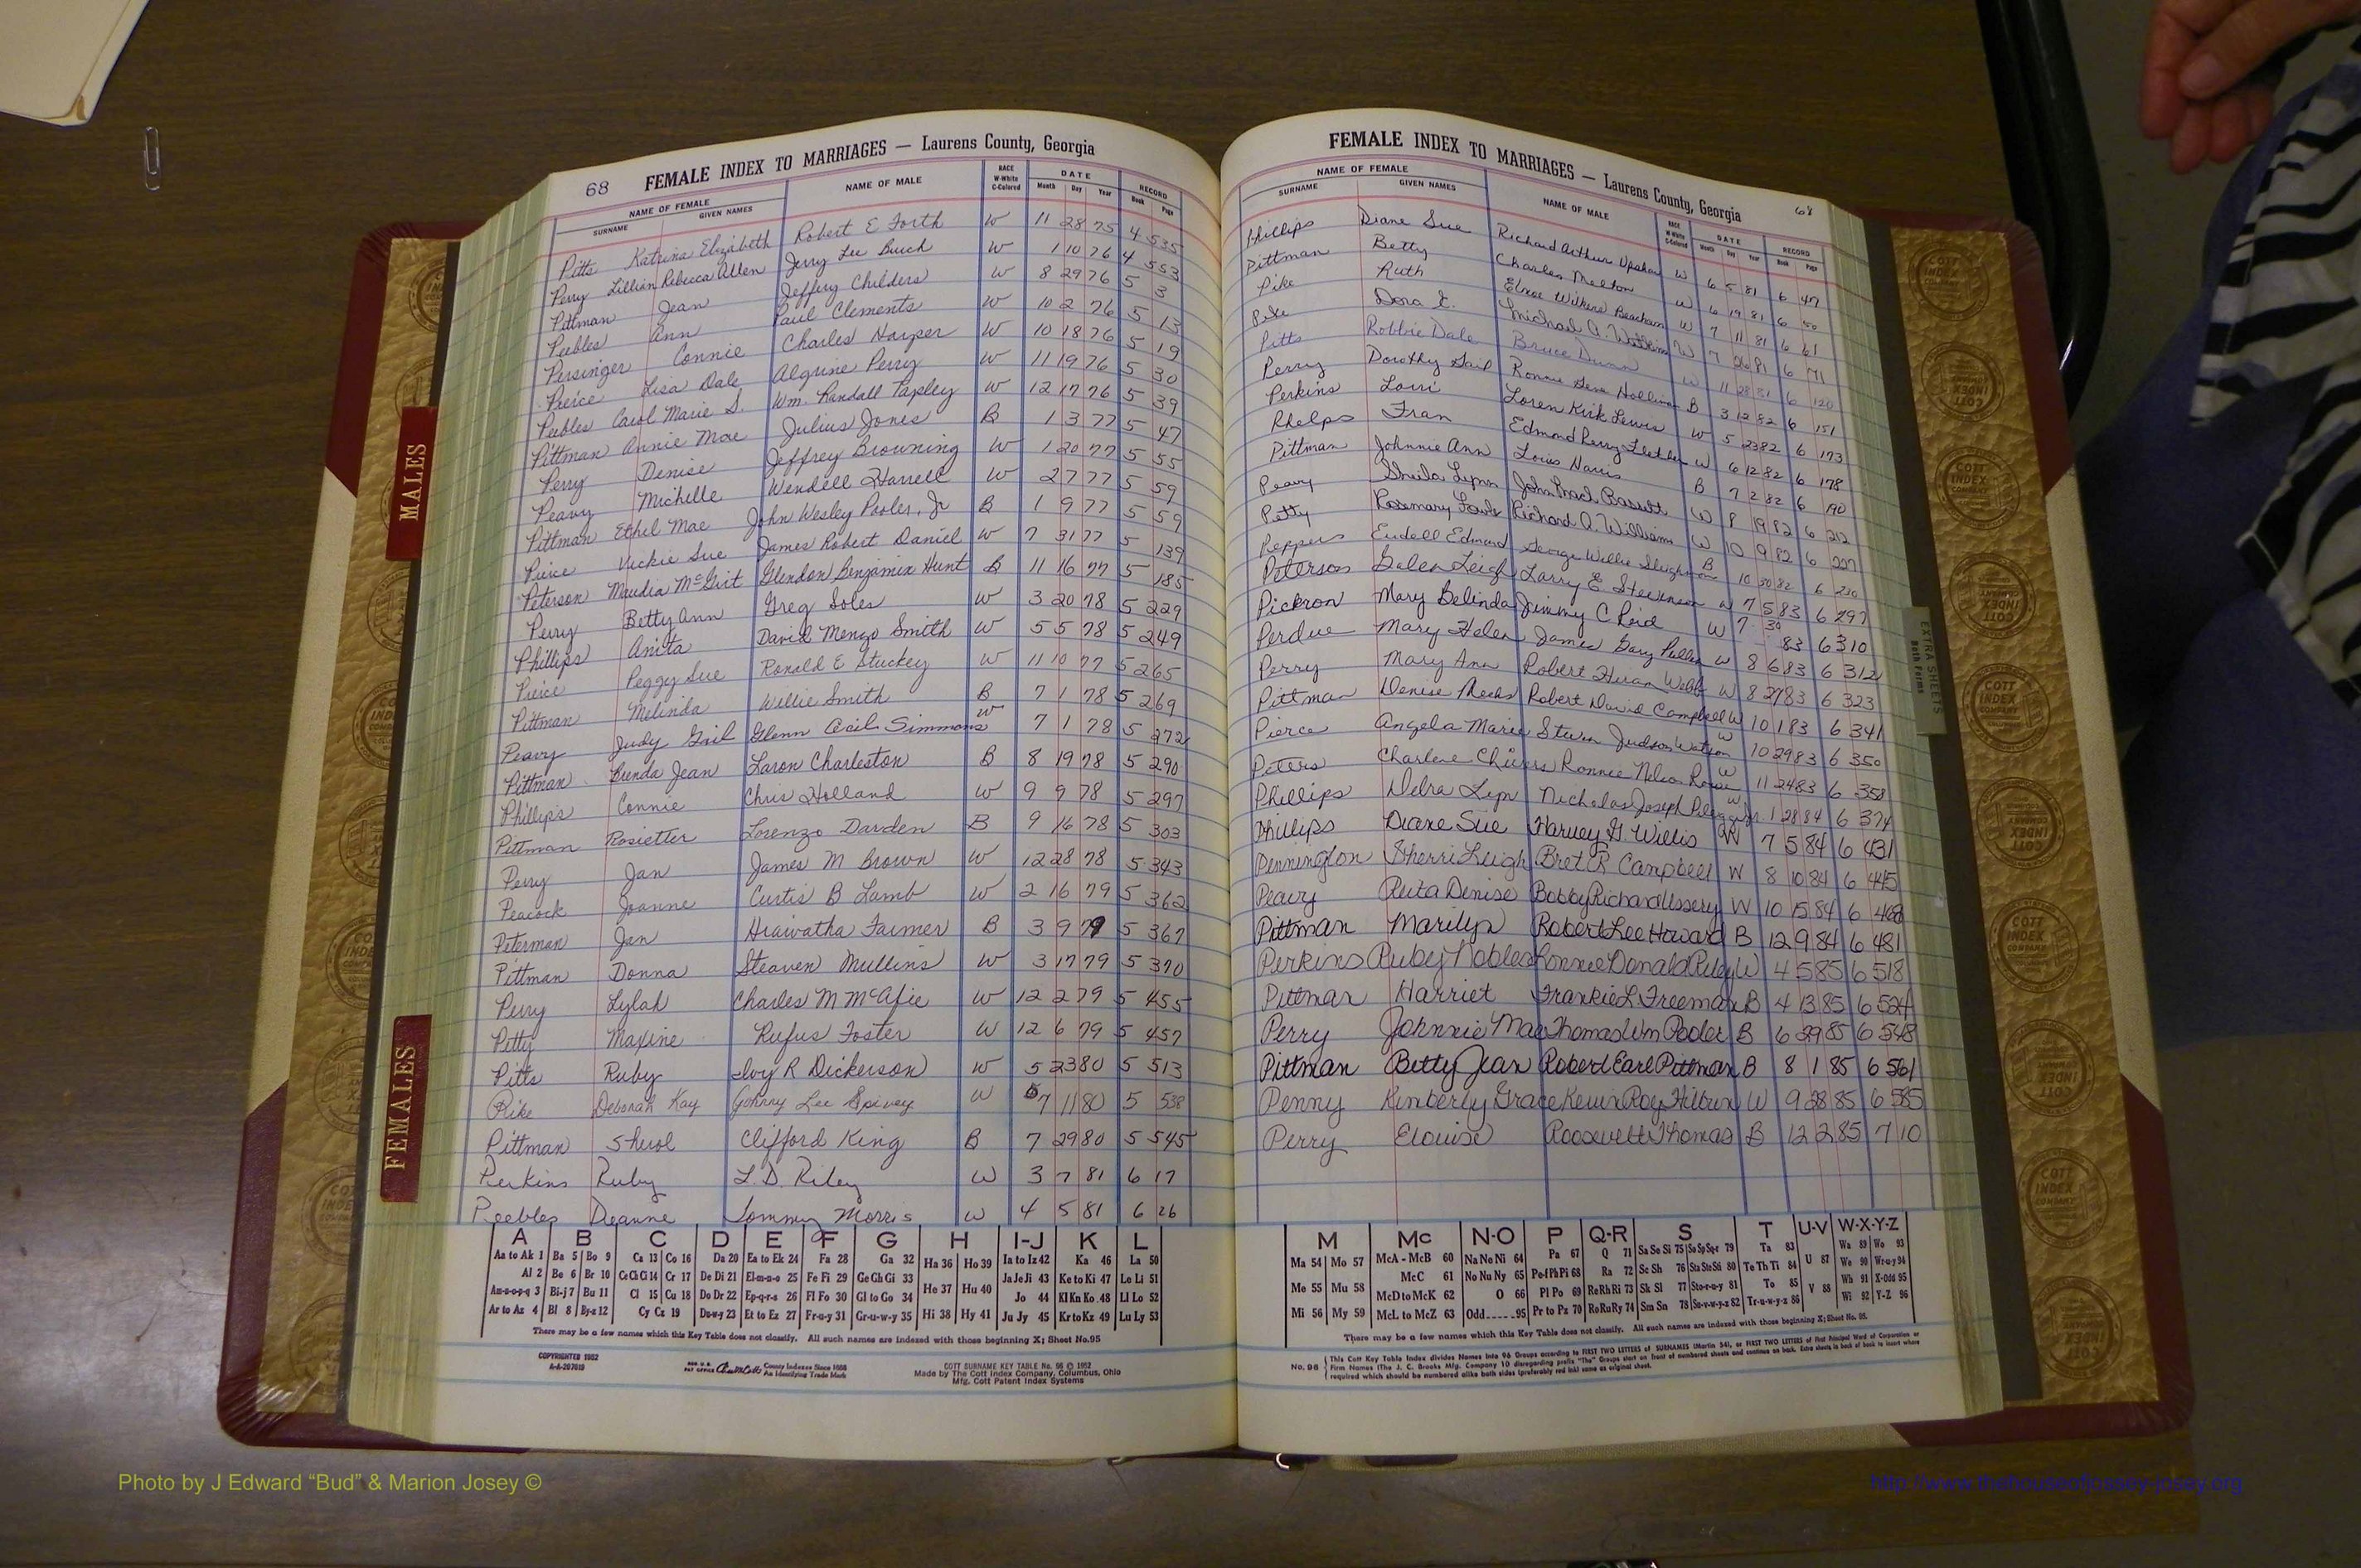 68 FEMALE INDEX TO MARRIAGES — Laurens County, Georgia
NAME OF FEMALE NAME OF MALE RACE W-White C-Colored DATE RECORD
SURNAME GIVEN NAMES Month Day Year Book Page
Pitts Katrina Elizabeth Robert E Forth W 11 28 75 4 535
Perry Lillian Rebecca Allen Jerry Lee Burch W 1 10 76 4 553
Pittman Jean Jeffery Childers W 8 29 76 5 3
Peebles Ann Paul Clements W 10 2 76 5 13
Persinger Connie Charles Harper W 10 18 76 5 19
Preice Lisa Dale Algrine Perry W 11 19 76 5 30
Peebles Carol Marie S. Wm. Randall Tapley W 12 17 76 5 39
Pittman Annie Mae Julius Jones B 1 3 77 5 47
Perry Denise Jeffrey Browning W 1 20 77 5 55
Peavy Michelle Wendell Harrell W 2 7 77 5 59
Pittman Ethel Mae John Wesley Pooler, Jr B 1 9 77 5 59
Peirce Vickie Sue James Robert Daniel W 7 31 77 5 139
Peterson Maudia McGrit Glendon Benjamin Hunt B 11 16 77 5 185
Perry Betty Ann Greg Soles W 3 20 78 5 229
Phillips Anita David Menzo Smith W 5 5 78 5 249
Peirce Peggy Sue Ronald E Stuckey W 11 10 77 5 265
Pittman Melinda Willie Smith B 7 1 78 5 269
Peavy Judy Gail Glenn Cecil Simmons W 7 1 78 5 272
Pittman Brenda Jean Laron Charleston B 8 19 78 5 290
Phillips Connie Chris Holland W 9 9 78 5 297
Pittman Rosietter Lorenzo Darden B 9 16 78 5 303
Perry Jan James M Brown W 12 28 78 5 343
Peacock Joanne Curtis B Lamb W 2 16 79 5 362
Peterman Jan Hiawatha Farmer B 3 9 79 5 367
Pittman Donna Steaven Mullins W 3 17 79 5 370
Perry Lylah Charles M McAfie W 12 2 79 5 455
Petty Maxine Rufus Foster W 12 6 79 5 457
Pitts Ruby Ivy R Dickerson W 5 23 80 5 513
Pike Deborah Kay Johnny Lee Spivey W 7 11 80 5 538
Pittman Sherol Clifford King B 7 29 80 5 545
Perkins Ruby L. D. Riley W 3 7 81 6 17
Peebles Deanne Tommy Morris W 4 5 81 6 26
A B C D E F G H I-J K L
Aa to Ak 1 Ba 5 Bo 9 Ca 13 Co 16 Da 20 Ea to Ek 24 Fa 28 Ga 32 Ha 36 Ho 39 Ia to Iz 42 Ka 46 La 50
Al 2 Be 6 Br 10 Ce Ch Ci 14 Cr 17 De Di 21 El-m-n-o 25 Fe Fi 29 Ge Gh Gi 33 Ja Je Ji 43 Ke to Ki 47 Le Li 51
Am-n-o-p-q 3 Bi-j 7 Bu 11 Cl 15 Cu 18 Do Dr 22 Ep-q-r-s 26 Fl Fo 30 Gl to Go 34 He 37 Hu 40 Jo 44 Kl Kn Ko 48 Ll Lo 52
Ar to Az 4 Bl 8 By-z 12 Cy Cz 19 Du-w-y 23 Et to Ez 27 Fr-u-y 31 Gr-u-w-y 35 Hi 38 Hy 41 Ju Jy 45 Kr to Kz 49 Lu Ly 53
There may be a few names which this Key Table does not classify. All such names are indexed with those beginning X; Sheet No.95
COPYRIGHTED 1952
A-A-207619
REG U.S. PAT OFFICE County Indexes Since 1888
An Identifying Trade Mark
COTT SURNAME KEY TABLE No. 96 © 1952
Made by The Cott Index Company, Columbus, Ohio
Mfg. Cott Patent Index Systems
FEMALE INDEX TO MARRIAGES — Laurens County, Georgia 68
NAME OF FEMALE NAME OF MALE RACE W-White C-Colored DATE RECORD
SURNAME GIVEN NAMES Month Day Year Book Page
Phillips Diane Sue Richard Arthur Upshaw W 6 5 81 6 47
Pittman Betty Charles Melton W 6 19 81 6 50
Pike Ruth Elzoe Wilkers Beacham W 7 11 81 6 61
Dora Michael A. Watkins W 7 26 81 6 71
Pitts Robbie Dale Bruce Dunn W 11 28 81 6 120
Perry Dorothy Gail Ronnie Gene B 3 12 82 6 151
Perkins Lorri Loren Kirk Lewis W 5 23 82 6 173
Phelps Fran Edmond Perry W 6 12 82 6 178
Pittman Johnnie Ann Louis Harris B 7 2 82 6 190
Peavy Sheila Lynn John Bassett W 8 19 82 6 212
Petty Rosemary Richard A. Williams W 10 9 82 6 227
Peppers Eudell Edmond George Willie B 10 30 82 6 230
Peterson Galen Leigh Larry E Stevenson W 7 5 83 6 297
Pickron Mary Belinda Jimmy C Reid W 7 30 83 6 310
Perdue Mary Helen James Gary Pullen W 8 6 83 6 312
Perry Mary Ann Robert Webb W 8 27 83 6 323
Pittman Denise Meeks Robert David Campbell W 10 1 83 6 341
Pierce Angela Marie Steven Judson Watson W 10 29 83 6 350
Peters Charlene Chivers Ronnie Nelson W 11 24 83 6 358
Phillips Debra Lyn Nicholas Joseph W 1 28 84 6 374
Phillips Diane Sue Harvey G. Willis W 7 5 84 6 431
Pennington Sherri Leigh Bret R Campbell W 8 10 84 6 445
Peavy Reita Denise Bobby Richard Ussery W 10 15 84 6 468
Pittman Marilyn Robert Lee Howard B 12 9 84 6 481
Perkins Ruby Nobles Ronnie Donald Riley W 4 5 85 6 518
Pittman Harriet Frankie L Freeman B 4 13 85 6 524
Perry Johnnie Mae Thomas Wm Pooler B 6 29 85 6 548
Pittman Betty Jean Robert Earl Pittman B 8 1 85 6 561
Penny Kimberly Grace Kevin Roy Hilbun W 9 28 85 6 585
Perry Elouise Roosevelt Thomas B 12 2 85 7 10
M Mc N-O P Q-R S T U-V W-X-Y-Z
Ma 54 Mo 57 McA - McB 60 Na Ne Ni 64 Pa 67 Q 71 Sa Se Si 75 So Sp Sq-r 79 Ta 83 Wa 89 Wo 93
McC 61 No Nu Ny 65 Pe-f Ph Pi 68 Ra 72 Sc Sh 76 Sta Ste Sti 80 Te Th Ti 84 U 87 We 90 Wr-u-y 94
Me 55 Mu 58 McD to McK 62 O 66 Pl Po 69 Re Rh Ri 73 Sk Sl 77 Sto-r-u-y 81 To 85 V 88 Wh 91 X-Odd 95
Mi 56 My 59 McL to McZ 63 Odd 95 Pr to Pz 70 Ro Ru Ry 74 Sm Sn 78 Su-v-w-y-z 82 Tr-u-w-y-z 86 Wi 92 Y-Z 96
There may be a few names which this Key Table does not classify. All such names are indexed with those beginning X; Sheet No. 95.
No. 96 This Cott Key Table Index divides Names into 96 Groups according to FIRST TWO LETTERS of SURNAMES (Martin 54), or FIRST TWO LETTERS of First Principal Word of Corporation or
Firm Names (The J. C. Brooks Mfg. Company 10 disregarding prefix "The") Groups start on front of numbered sheets and continue on back. Extra sheets in back of book to insert where
required which should be numbered alike both sides (preferably red ink) same as original sheet.
MALES
FEMALES
EXTRA SHEETS
Both Forms
COTT INDEX COMPANY
Photo by J Edward “Bud” & Marion Josey ©
http://www.thehouseofjossey-josey.org